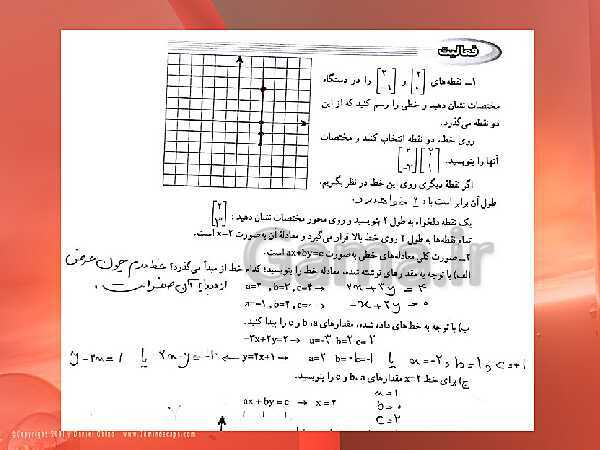 فعالیت
۱ـ نقطه‌های [۲ ۰] و [۲ ۳] را در دستگاه
مختصات نشان دهید و خطی را رسم کنید که از این
دو نقطه می‌گذرد.
روی خط، دو نقطه انتخاب کنید و مختصات
آنها را بنویسید.
اگر نقطهٔ دیگری روی این خط در نظر بگیریم،
طول آن برابر است با: ۲ خواهد بود.
یک نقطه دلخواه به طول ۲ بنویسید و روی محور مختصات نشان دهید:
تمام نقطه‌ها به طول ۲ روی خط بالا قرار می‌گیرد و معادلهٔ آن به صورت x=۲ است.
۲ـ صورت کلی معادله‌های خطی به صورت ax+by=c است.
الف) با توجه به مقدارهای نوشته شده، معادله خط را بنویسید؛ کدام خط از مبدأ می‌گذرد؟ خط دوم چون عرض
a=۲ , b=۲, c=۴ → ۲x+۲y=۴ از مبدأ آن صفر است.
a=-۱, b=۲, c=۰ → -x+۲y=۰
ب) با توجه به خط‌های داده شده، مقدارهای b ،a و c را پیدا کنید.
-۳x+۲y=۲ → a=-۳ b=۲ c=۲
y-۲x=۱ یا ۲x-y=-۱ ← y=۲x+۱ → a=۲ b=-۱ یا a=-۲, b=۱, c=+۱
ج) برای خط x=۲ مقدارهای b ،a و c را بنویسید.
ax+by=c → x=۲
a=۱
b=۰
c=۲
Gama.ir